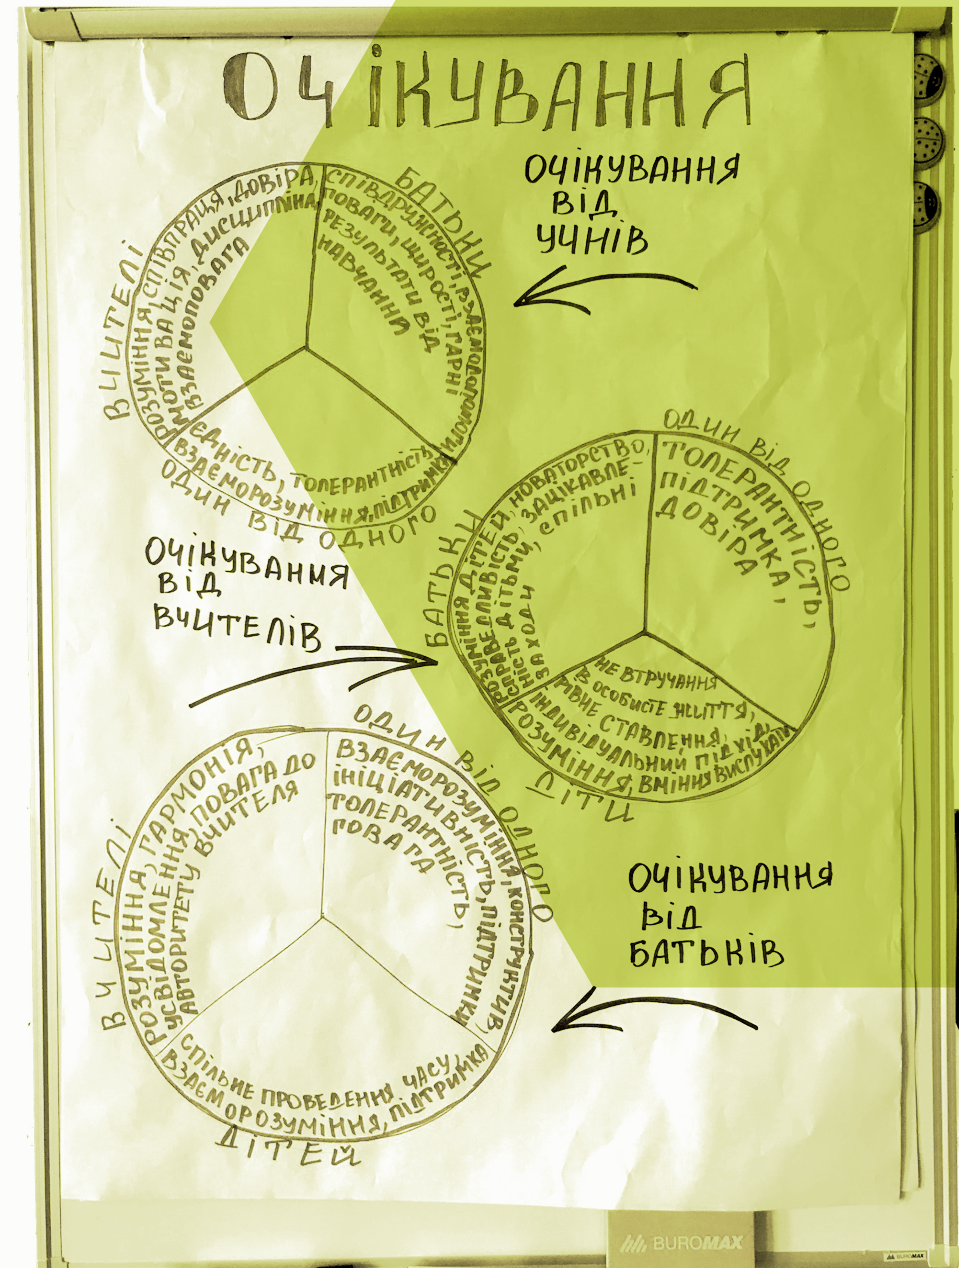 ОЧІКУВАННЯ
ОЧІКУВАННЯ
ВІД
УЧНІВ
ВЧИТЕЛІ
РОЗУМІННЯ, СПІВПРАЦЯ, ДОВІРА,
МОТИВАЦІЯ, ДИСЦИПЛІНА,
ВЗАЄМОПОВАГА
БАТЬКИ
СПІВДРУЖНОСТІ, ВЗАЄМОДОПОМОГИ
ПОВАГИ, ЩИРОСТІ, ГАРНІ
РЕЗУЛЬТАТИ ВІД
НАВЧАННЯ
ЄДНІСТЬ, ТОЛЕРАНТНІСТЬ,
ВЗАЄМОРОЗУМІННЯ, ПІДТРИМКА
ОДИН ВІД ОДНОГО
ОЧІКУВАННЯ
ВІД
ВЧИТЕЛІВ
БАТЬКИ
РОЗУМІННЯ ДІТЕЙ, НОВАТОРСТВО,
СПРАВЕДЛИВІСТЬ, ЗАЦІКАВЛЕ-
НІСТЬ ДІТЬМИ, СПІЛЬНІ
ЗАХОДИ
ОДИН ВІД ОДНОГО
ТОЛЕРАНТНІСТЬ,
ПІДТРИМКА,
ДОВІРА
НЕ ВТРУЧАННЯ
В ОСОБИСТЕ ЖИТТЯ,
РІВНЕ СТАВЛЕННЯ,
ІНДИВІДУАЛЬНИЙ ПІДХІД,
РОЗУМІННЯ, ВМІННЯ ВИСЛУХАТИ
ДІТИ
ОЧІКУВАННЯ
ВІД
БАТЬКІВ
ВЧИТЕЛІ
РОЗУМІННЯ, ГАРМОНІЯ,
УСВІДОМЛЕННЯ, ПОВАГА ДО
АВТОРИТЕТУ ВЧИТЕЛЯ
ОДИН ВІД ОДНОГО
ВЗАЄМОРОЗУМІННЯ, КОНСТРУКТИВ,
ІНІЦІАТИВНІСТЬ, ПІДТРИМКИ
ТОЛЕРАНТНІСТЬ,
ПОВАГА
СПІЛЬНЕ ПРОВЕДЕННЯ ЧАСУ,
ВЗАЄМОРОЗУМІННЯ, ПІДТРИМКА
ДІТЕЙ
BUROMAX
BUROMAX